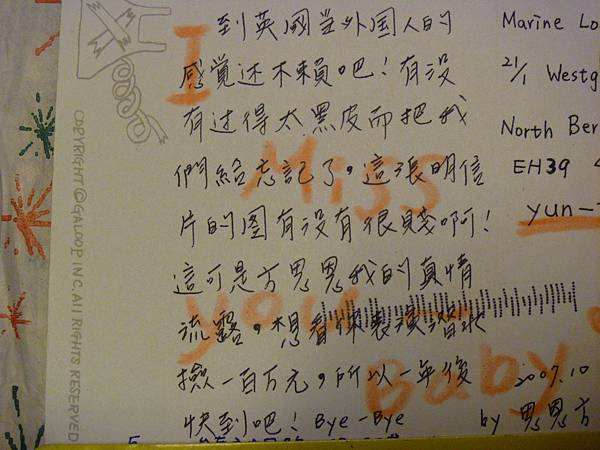 到英國当外国人的
感覺还不賴吧！有沒
有过得太黑皮而把我
們給忘記了，這張明信
片的图有沒有很賤啊！
這可是方思思我的真情
流露，想看你表演潛水
撿一百万元，所以一年後
快到吧！Bye-Bye
I
Miss
you
Baby
Marine Lo
21/1 Westg
North Ber
EH39 4
yun-
2007.10
by 思思方
COPYRIGHT © GALOOP INC. All RIGHTS RESERVED